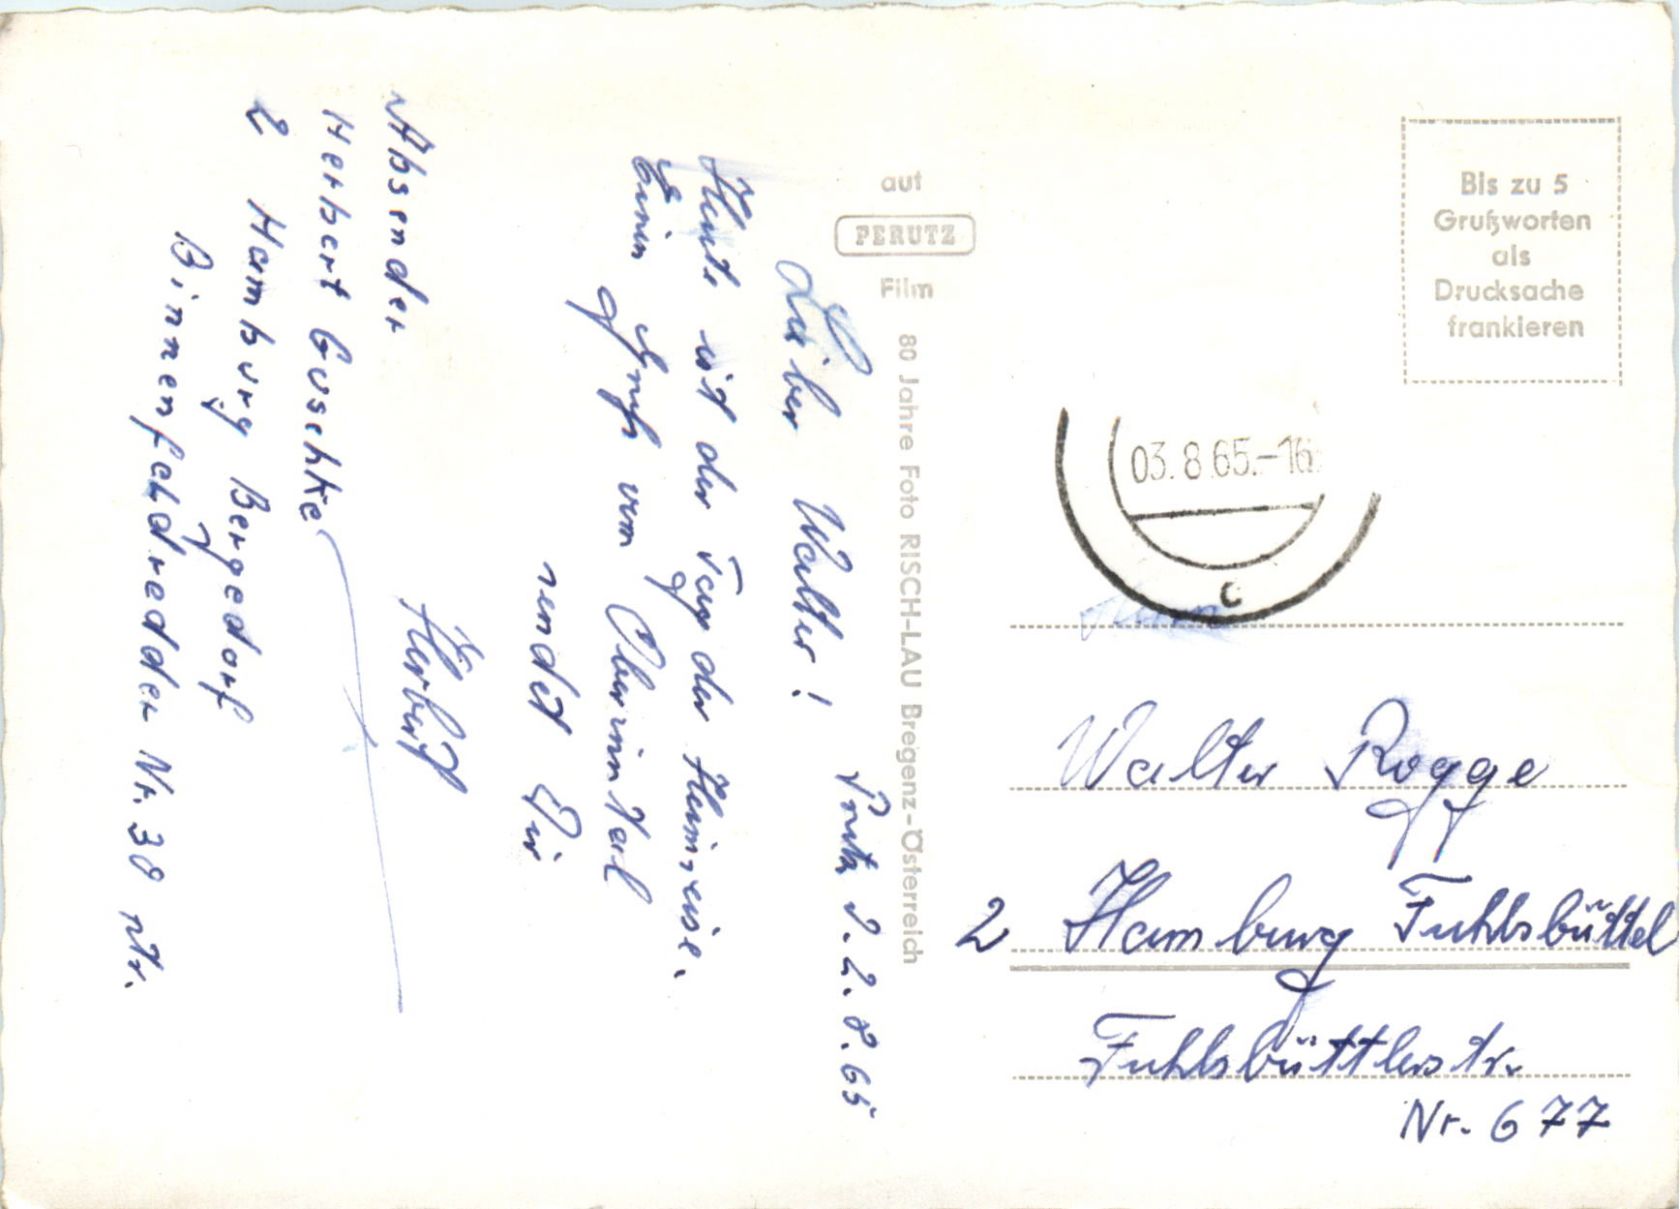 Prutz d. 2.8.65
Lieber Walter!
Heute ist der Tag der Heimreise.
Einen Gruß vom Oberinntal
sendet Dir
Herbert
Absender
Herbert Guschke
2 Hamburg Bergedorf
Binnenfeldredder Nr. 30
auf
PERUTZ
Film
80 Jahre Foto RISCH-LAU Bregenz-Österreich
Bis zu 5
Grußworten
als
Drucksache
frankieren
03.8.65.-16
c
Walter Rogge
2 Hamburg Fuhlsbüttel
Fuhlsbüttlerstr.
Nr. 677